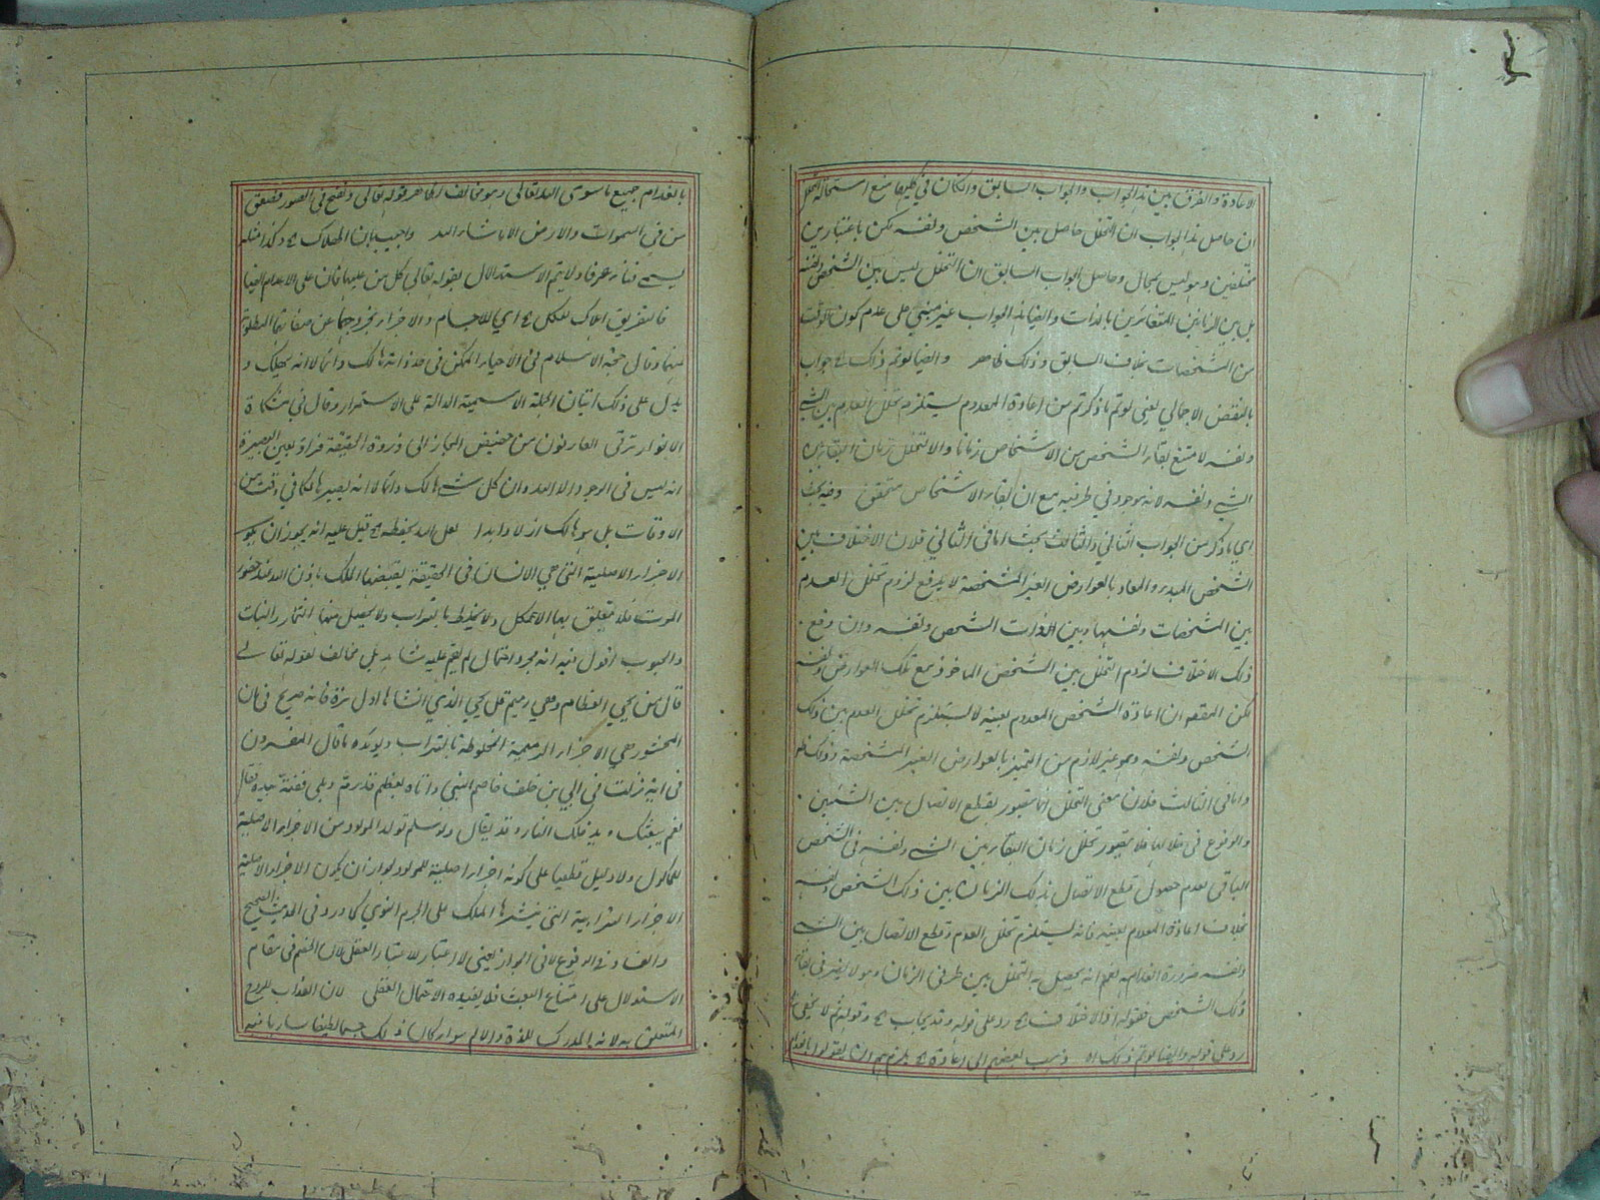 الاعادة والفرق بين هذا الجواب والجواب السابق وان كان في كليهما منع استحالة التخلل
ان حاصل هذا الجواب ان التخلل حاصل بين الشخص ونفسه لكن باعتبارين
مختلفين وهو ليس بمحال وحاصل الجواب السابق ان التخلل ليس بين الشخص ونفسه
بل بين الزمانين المتغائرين بالذات وايضا هذا الجواب غير مبني على عدم كون الوقت
من المشخصات بخلاف السابق وذلك ظاهر وايضا لو تم ذلك ے جواب
بالنقض الاجمالي يعني لو تم ما ذكرتم من اعادة المعدوم يستلزم تخلل العدم بين الشے
ونفسه لامتنع بقاء الشخص من الاشخاص زمانا والا لتخلل زمان البقاء بين
الشے ونفسه لانه موجود في طرفيه مع ان بقاء الاشخاص متحقق وفيه بحث
اي ما ذكر من الجواب الثاني والثالث بحث اما في الثاني فلان الاختلاف بين
الشخص المبدء والمعاد بالعوارض الغير المشخصة لا يدفع لزوم تخلل العدم
بين المشخصات ونفسها وبين الذات الشخص ونفسه وان دفع
ذلك الاختلاف لزوم التخلل بين الشخص الماخوذ مع تلك العوارض ونفسه
لكن المقصد ان اعادة الشخص المعدوم بعينه لا يستلزم تخلل العدم بين ذلك
الشخص ونفسه وهو غير لازم من التميز بالعوارض الغير المشخصة وذلك ظ
واما في الثالث فلان معنى التخلل انما يتصور بقطع الاتصال بين الشيئين
والوقوع في خلالها فلا يتصور تخلل زمان البقاء بين الشے ونفسه في الشخص
الباقي لعدم حصول قطع الاتصال بذلك الزمان بين ذلك الشخص ونفسه
بخلاف اعادة المعدوم بعينه فانه يستلزم تخلل العدم وقطع الاتصال بين الشے
ونفسه ضرورة انعدامه نعم انه يحصل به التخلل بين طرفي الزمان وهو لا يضر في بقاء
ذلك الشخص فقوله اذ الاختلاف ے رد على قوله وقد يجاب ے وقوله ثم لا يخفى
رد على قوله وايضا لو تم ذلك اه وذهب بعضهم الى اعادة ے يلزمهم ان يقولوا بانعدام
بانعدام جميع ما سوى الله تعالى وهو مخالف لظاهر قوله تعالى ونفخ في الصور فصعق
من في السموات والارض الا ما شاء الله واجيب بان الهلاك ے وكذا مثله
يسمے فناء عرفا ولا يتم الاستدلال بقوله تعالى كل من عليها فان على الاعدام ايضا
فالتفريق اهلاك للكل ے اي للاجسام والاجزاء بخروجها عن صفاتها المطلوبة
منها وقال حجة الاسلام في الاحياء الممكن في حد ذاته هالك دائما لا انه يهلك و
يدل على ذلك اتيان الجملة الاسمية الدالة على الاستمرار وقال في مشكاة
الانوار ترقى العارفون من حضيض المجاز الى ذروة الحقيقة فراوا بعين البصيرة
انه ليس في الوجود الا الله وان كل شے هالك دائما لا انه يصير هالكا في وقت من
الاوقات بل هو هالك ازلا وابدا لعل الله يحفظه ے قيل عليه انه يجوز ان يكون
الاجزاء الاصلية التي هي الانسان في الحقيقة يقبضها الملك باذن الله عند حضور
الموت فلا يتعلق بها الاكل ولا يختلط بالتراب ولا يحصل منها الثمار والنبات
والحبوب اقول فيه انه مجرد احتمال لم يقم عليه شاهد بل مخالف لقوله تعالے
قال من يحيي العظام وهي رميم قل يحيي الذي انشاها اول مرة فانه صريح في ان
المحشور هي الاجزاء الرميمة المخلوطة بالتراب ويؤيده ما قال المفسرون
في انه نزلت في ابي بن خلف خاصم النبي واتاه بعظم قد رم وبلي ففتته بيده فقال
نعم يبعثك ويدخلك النار وقد يقال ولو سلم تولد المولود من الاجزاء الاصلية
للماكول ولا دليل قطعيا على كونه اجزاء اصلية للمولود لجواز ان يكون الاجزاء الاصلية
الاجزاء الترابية التي ينشرها الملك على الجرم النوي كما ورد في الحديث الصحيح
والفساد في الوقوع لا في الجواز يعني لا اعتبار لاستبعاد العقل لان الخصم في مقام
الاستدلال على امتناع البعث فلا يفيده الاحتمال العقلي لان العذاب للروح
المتعلق به لانه المدرك للذة والالم سواء كان ذلك جسما لطيفا ساريا فيه